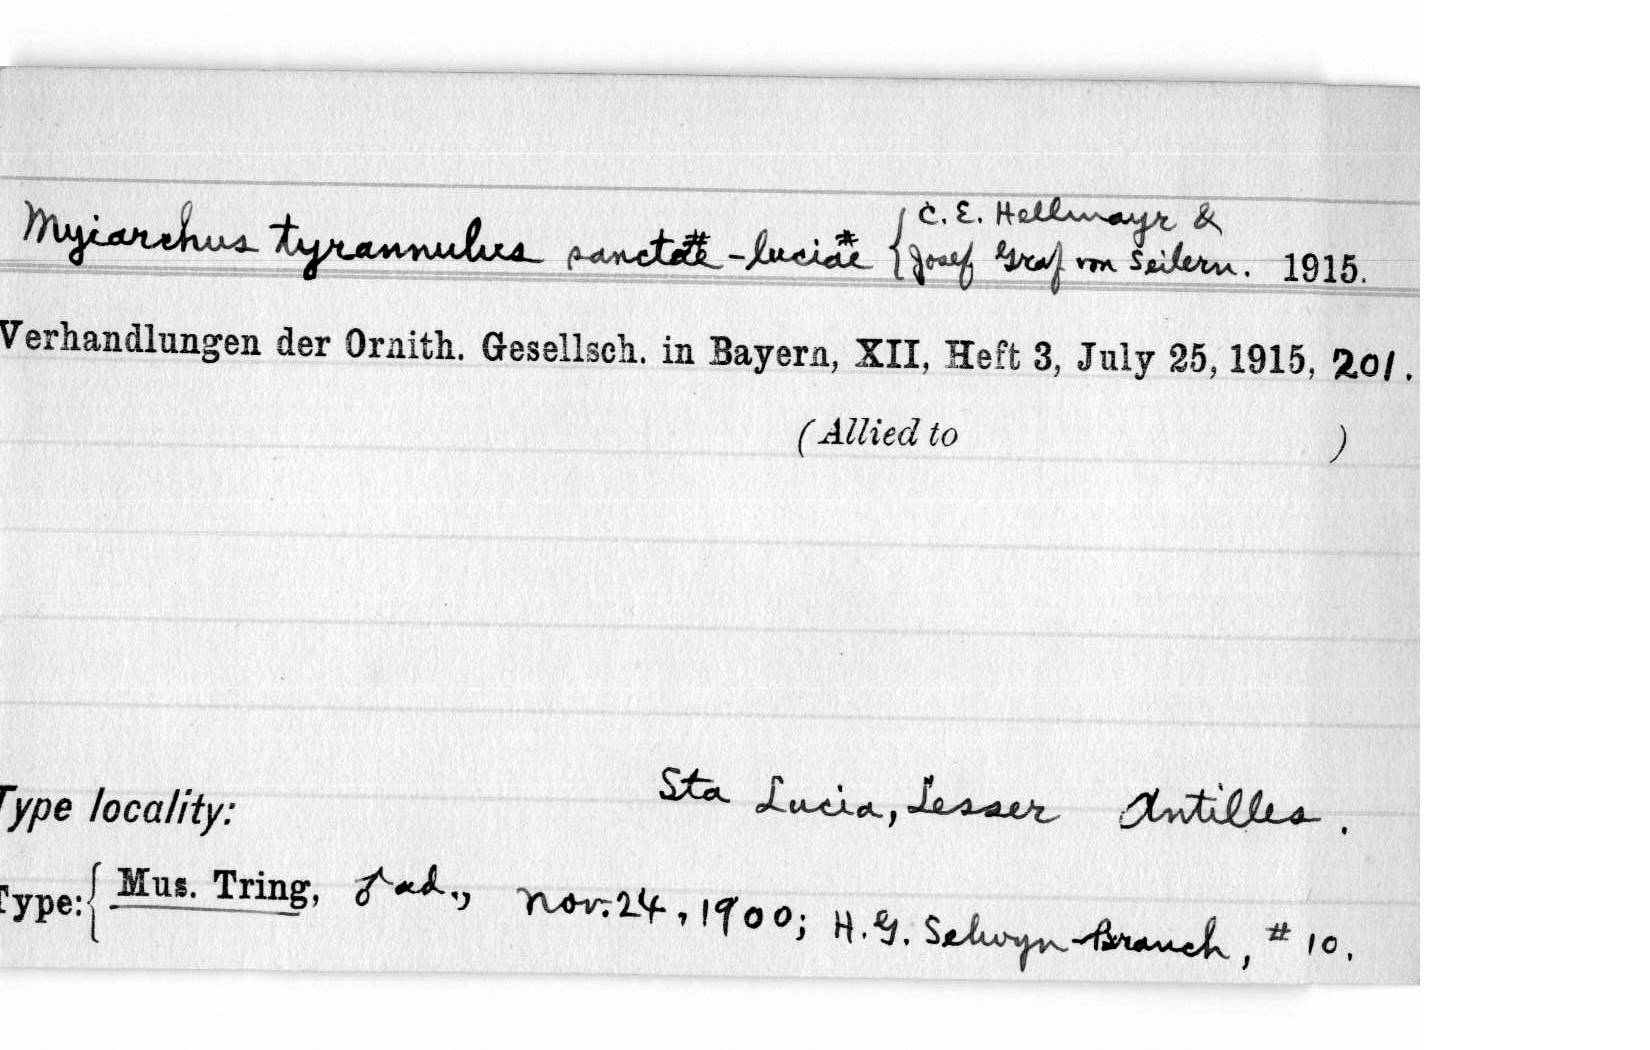 Myiarchus tyrannulus sanctæ-luciæ { C. E. Hellmayr &
Josef Graf von Seilern. 1915.
Verhandlungen der Ornith. Gesellsch. in Bayern, XII, Heft 3, July 25, 1915, 201.
(Allied to )
Type locality: Sta Lucia, Lesser Antilles.
Type: { Mus. Tring, ♂ ad., Nov. 24, 1900; H. G. Selwyn-Branch, # 10.